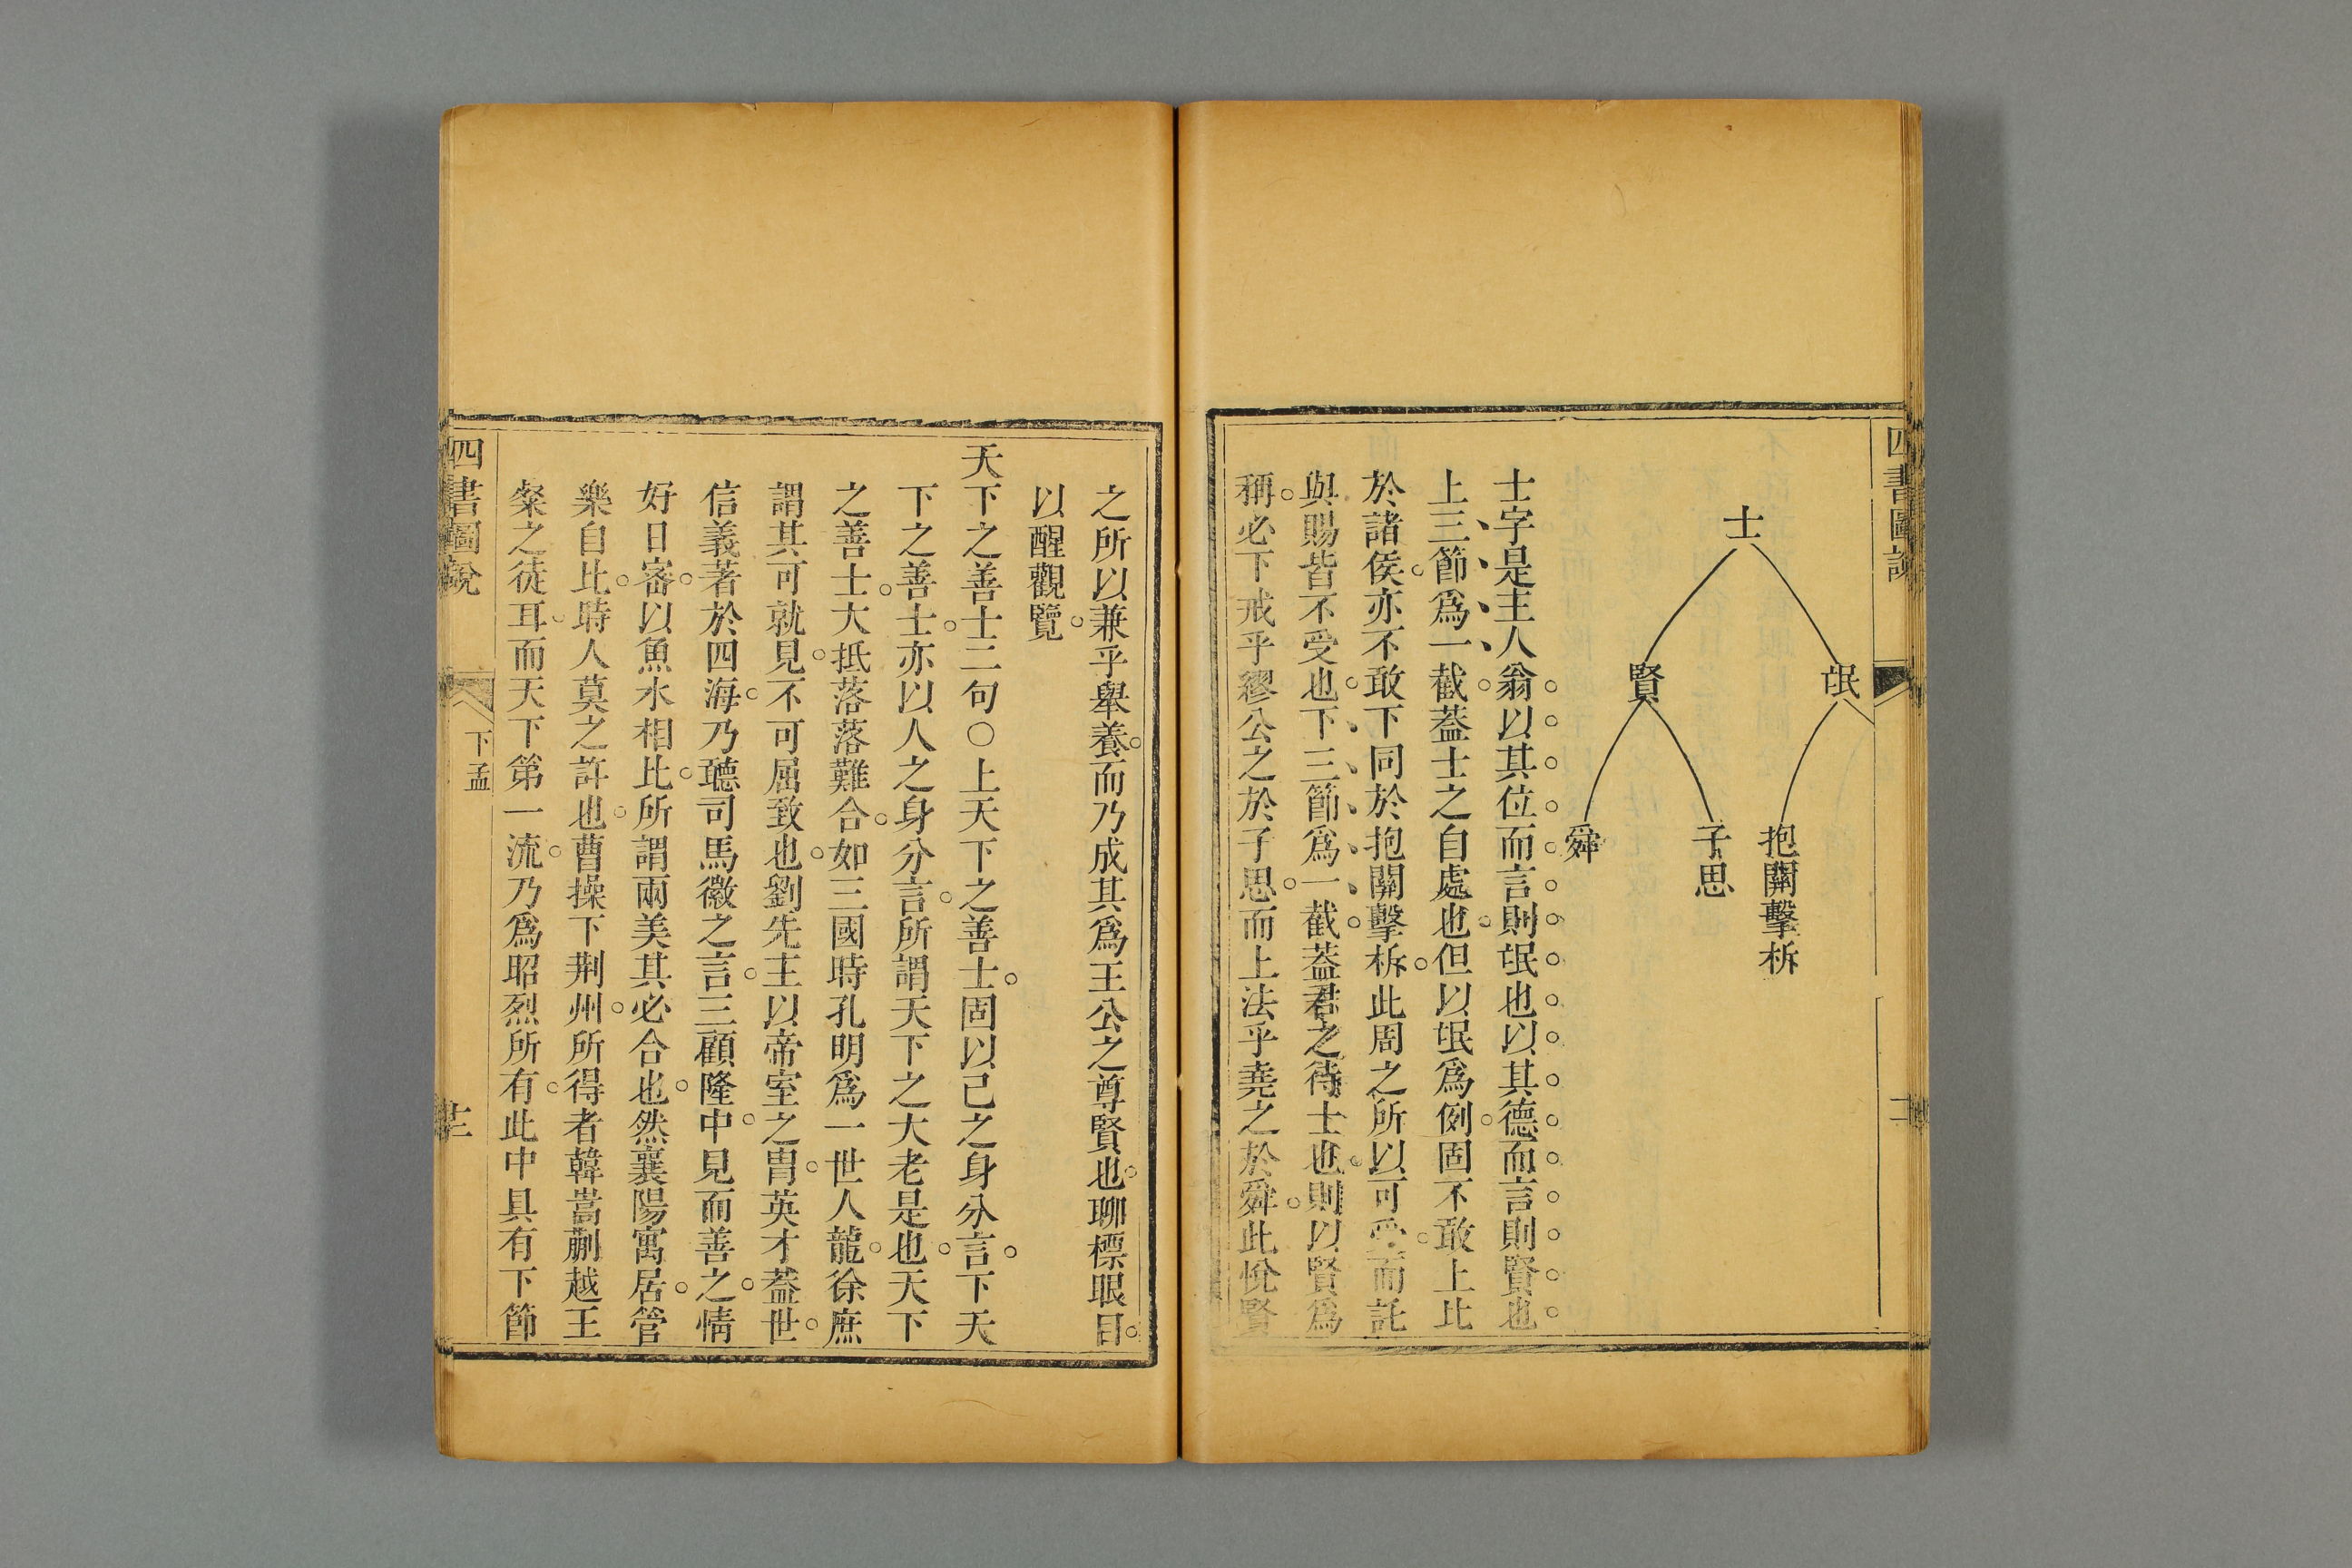 四書圖說
士
氓
賢
抱關擊柝
子思
舜
士字是主人翁以其位而言則氓也以其德而言則賢也
上三節爲一截蓋士之自處也但以氓爲例固不敢上比
於諸侯亦不敢下同於抱關擊柝此周之所以可受而託
與賜皆不受也下三節爲一截蓋君之待士也則以賢爲
稱必下戒乎繆公之於子思而上法乎堯之於舜此悅賢
之所以兼乎舉養而乃成其爲王公之尊賢也聊標眼目
以醒觀覽
天下之善士二句○上天下之善士固以己之身分言下天
下之善士亦以人之身分言所謂天下之大老是也天下
之善士大抵落落難合如三國時孔明爲一世人龍徐庶
謂其可就見不可屈致也劉先主以帝室之冑英才蓋世
信義著於四海乃聽司馬徽之言三顧隆中見而善之情
好日密以魚水相比所謂兩美其必合也然襄陽寓居管
樂自比時人莫之許也曹操下荆州所得者韓嵩蒯越王
粲之徒耳而天下第一流乃爲昭烈所有此中具有下節
四書圖說
下孟